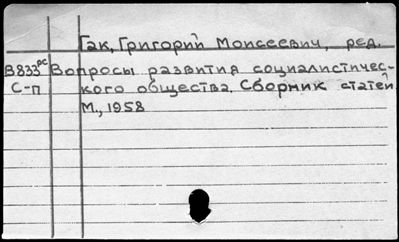 Гак, Григорий Моисеевич, ред.
В833рс Вопросы развития социалистичес-
С-п кого общества. Сборник статей
М., 1958